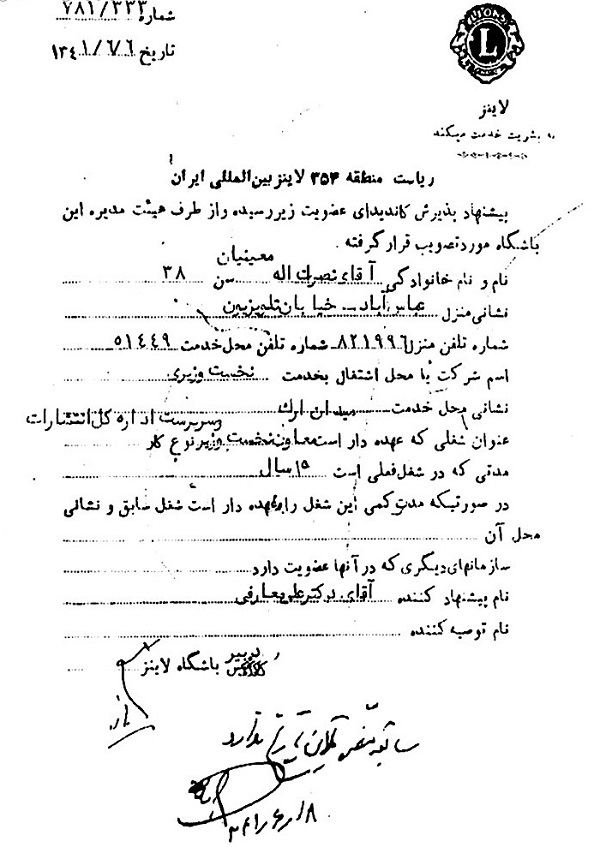 شماره ۷۸۱/۳۳۳
تاریخ ۱۳۴۱/۶/۶
LIONS
L
لاینز
به بشریت خدمت میکند
ریاست منطقه ۳۵۴ لاینز بین‌المللی ایران
پیشنهاد پذیرش کاندیدای عضویت زیر رسیده و از طرف هیئت مدیره این
باشگاه مورد تصویب قرار گرفته.
نام و نام خانوادگی آقای نصرت اله معینیان سن ۳۸
نشانی منزل عباس آباد - خیابان تلویزیون
شماره تلفن منزل ۸۲۱۹۹۶ شماره تلفن محل خدمت ۵۱۴۴۹
اسم شرکت یا محل اشتغال بخدمت نخست وزیری
نشانی محل خدمت میدان ارک
عنوان شغلی که عهده دار است معاون نخست وزیر و سرپرست اداره کل انتشارات نوع کار
مدتی که در شغل فعلی است ۱۵ سال
در صورتیکه مدت کمی این شغل را بعهده دار است شغل سابق و نشانی
محل آن
سازمانهای دیگری که در آنها عضویت دارد
نام پیشنهاد کننده آقای دکتر علی معارفی
نام توصیه کننده
دبیر باشگاه لاینز
سابقه ندارد
۴۱/۶/۱۸